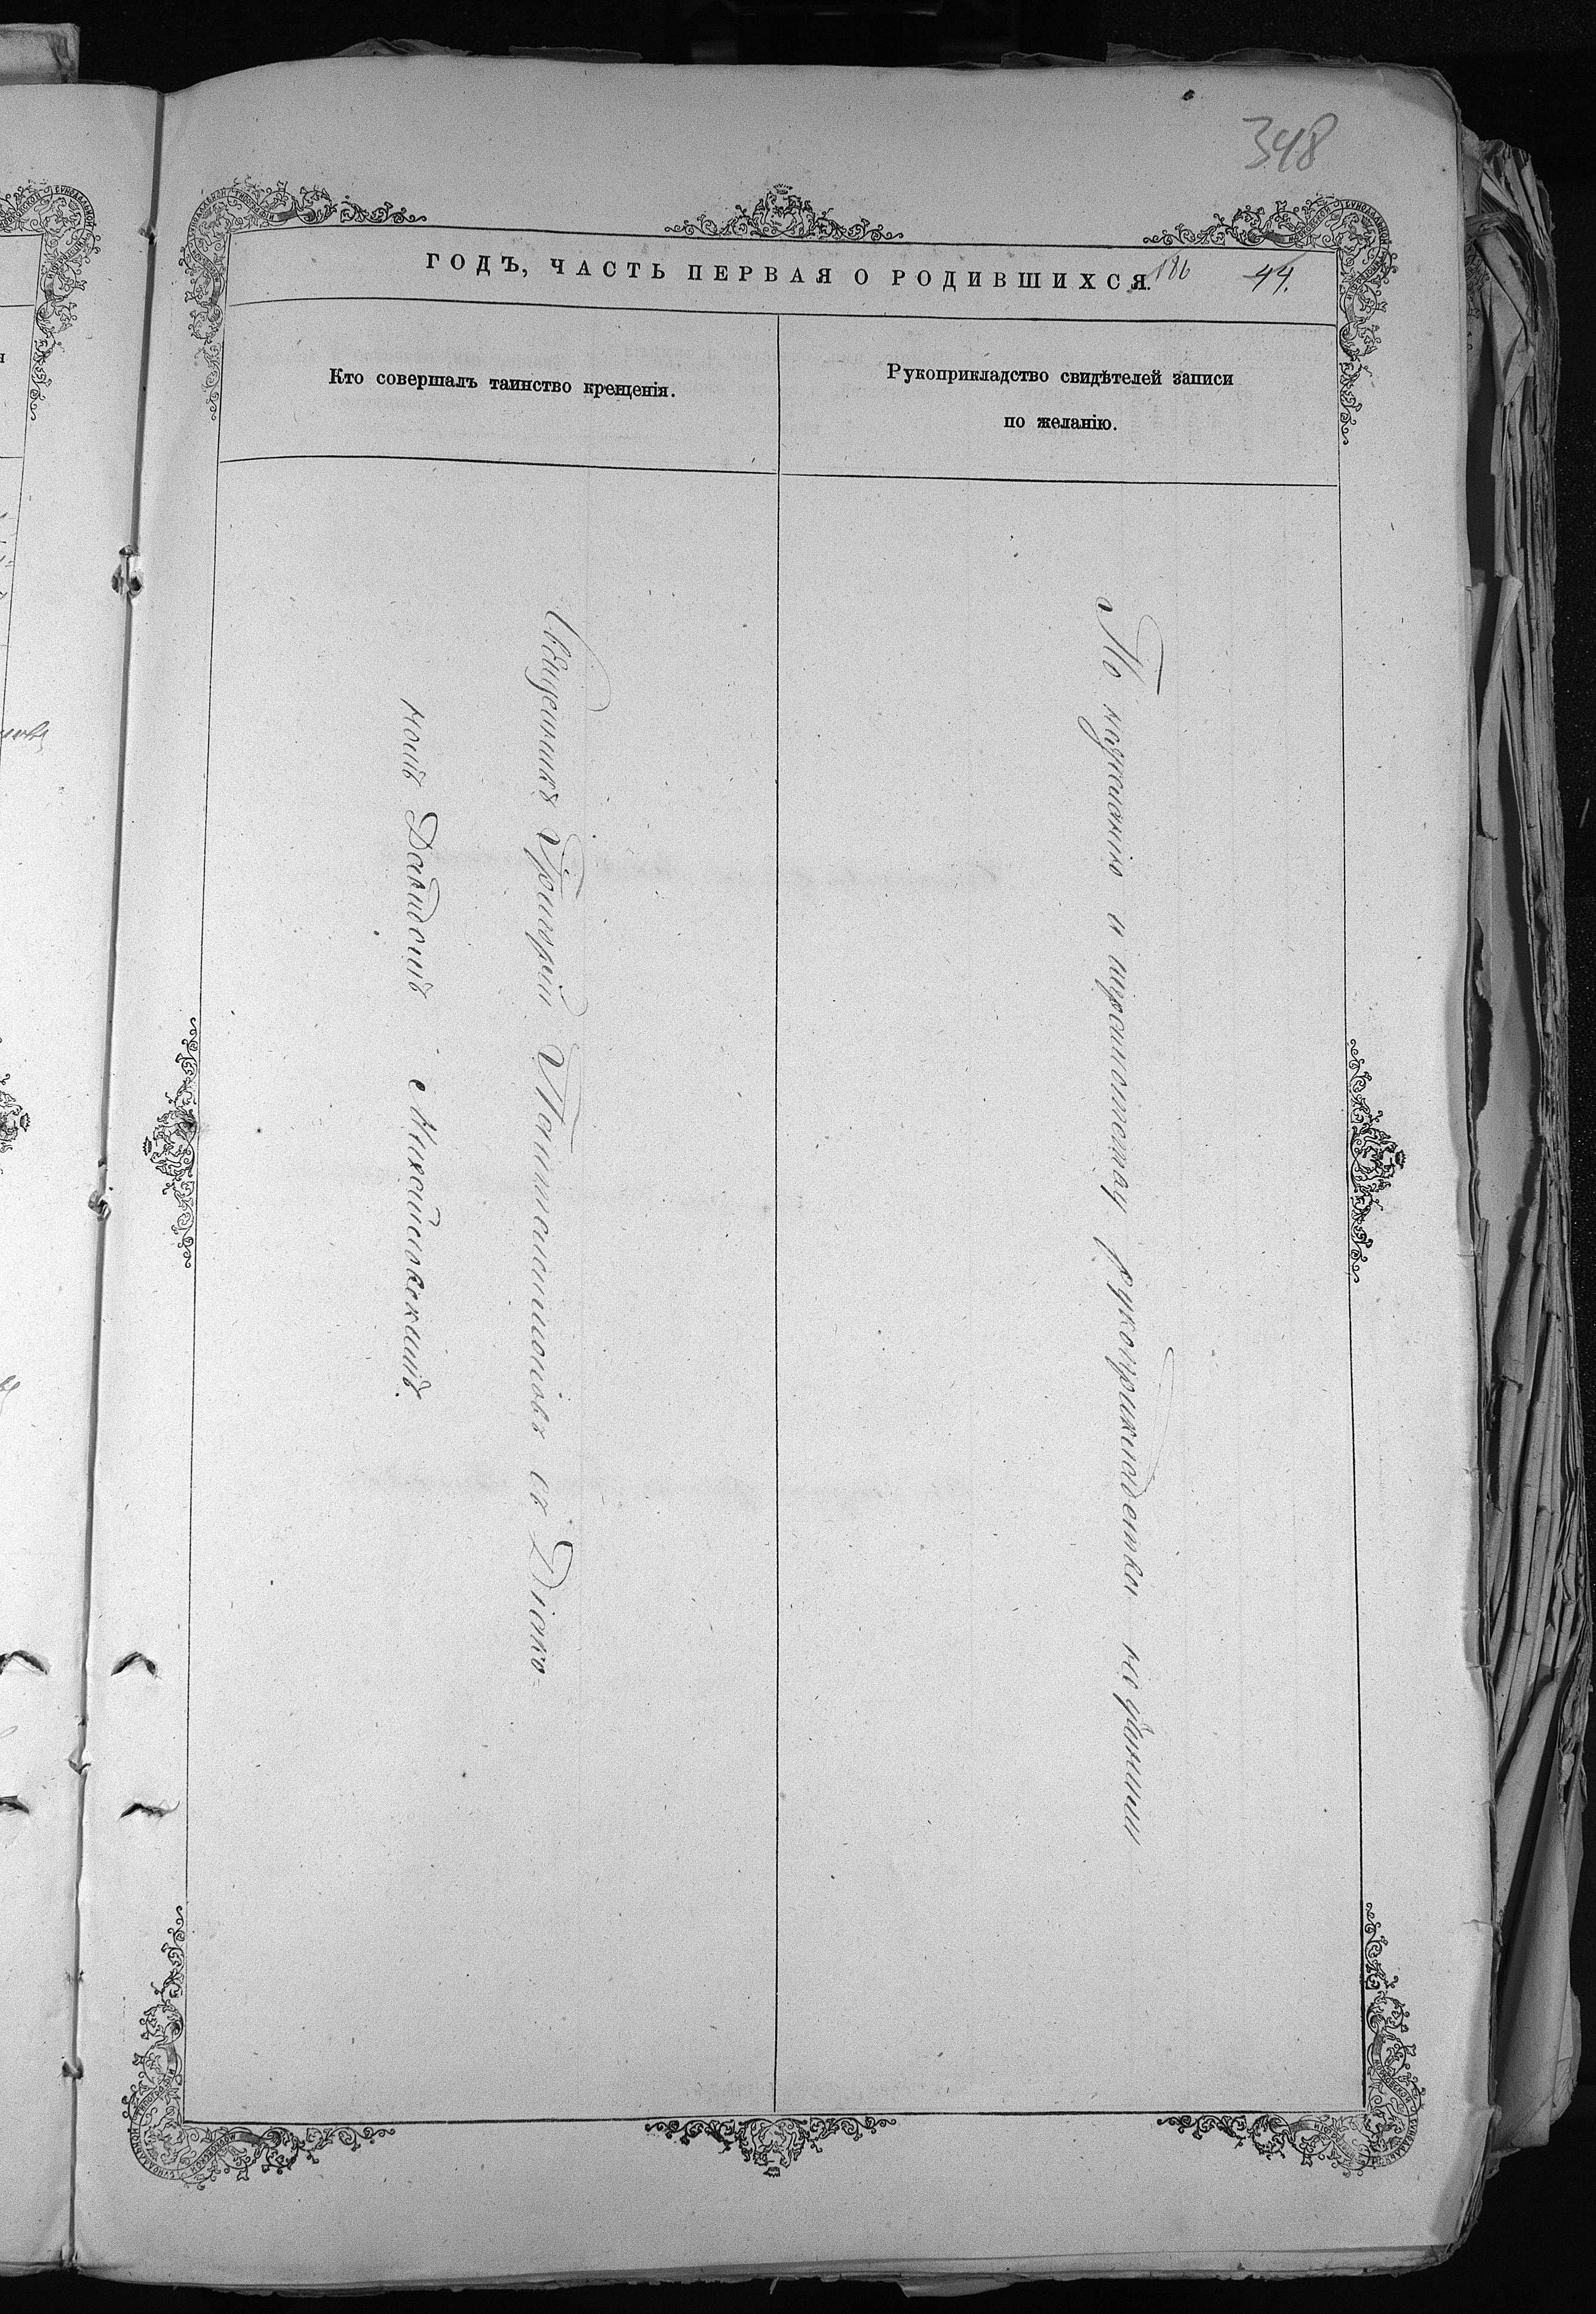 348
ГОДЪ, ЧАСТЬ ПЕРВАЯ О РОДИВШИХСЯ. 186 44.
Кто совершалъ таинство крещенія.
Рукоприкладство свидѣтелей записи
по желанію.
Священникъ Григорій Пантелеимоновъ съ Діако-
номъ Давидомъ Михайловскимъ.
По желанію и рукоприкладства